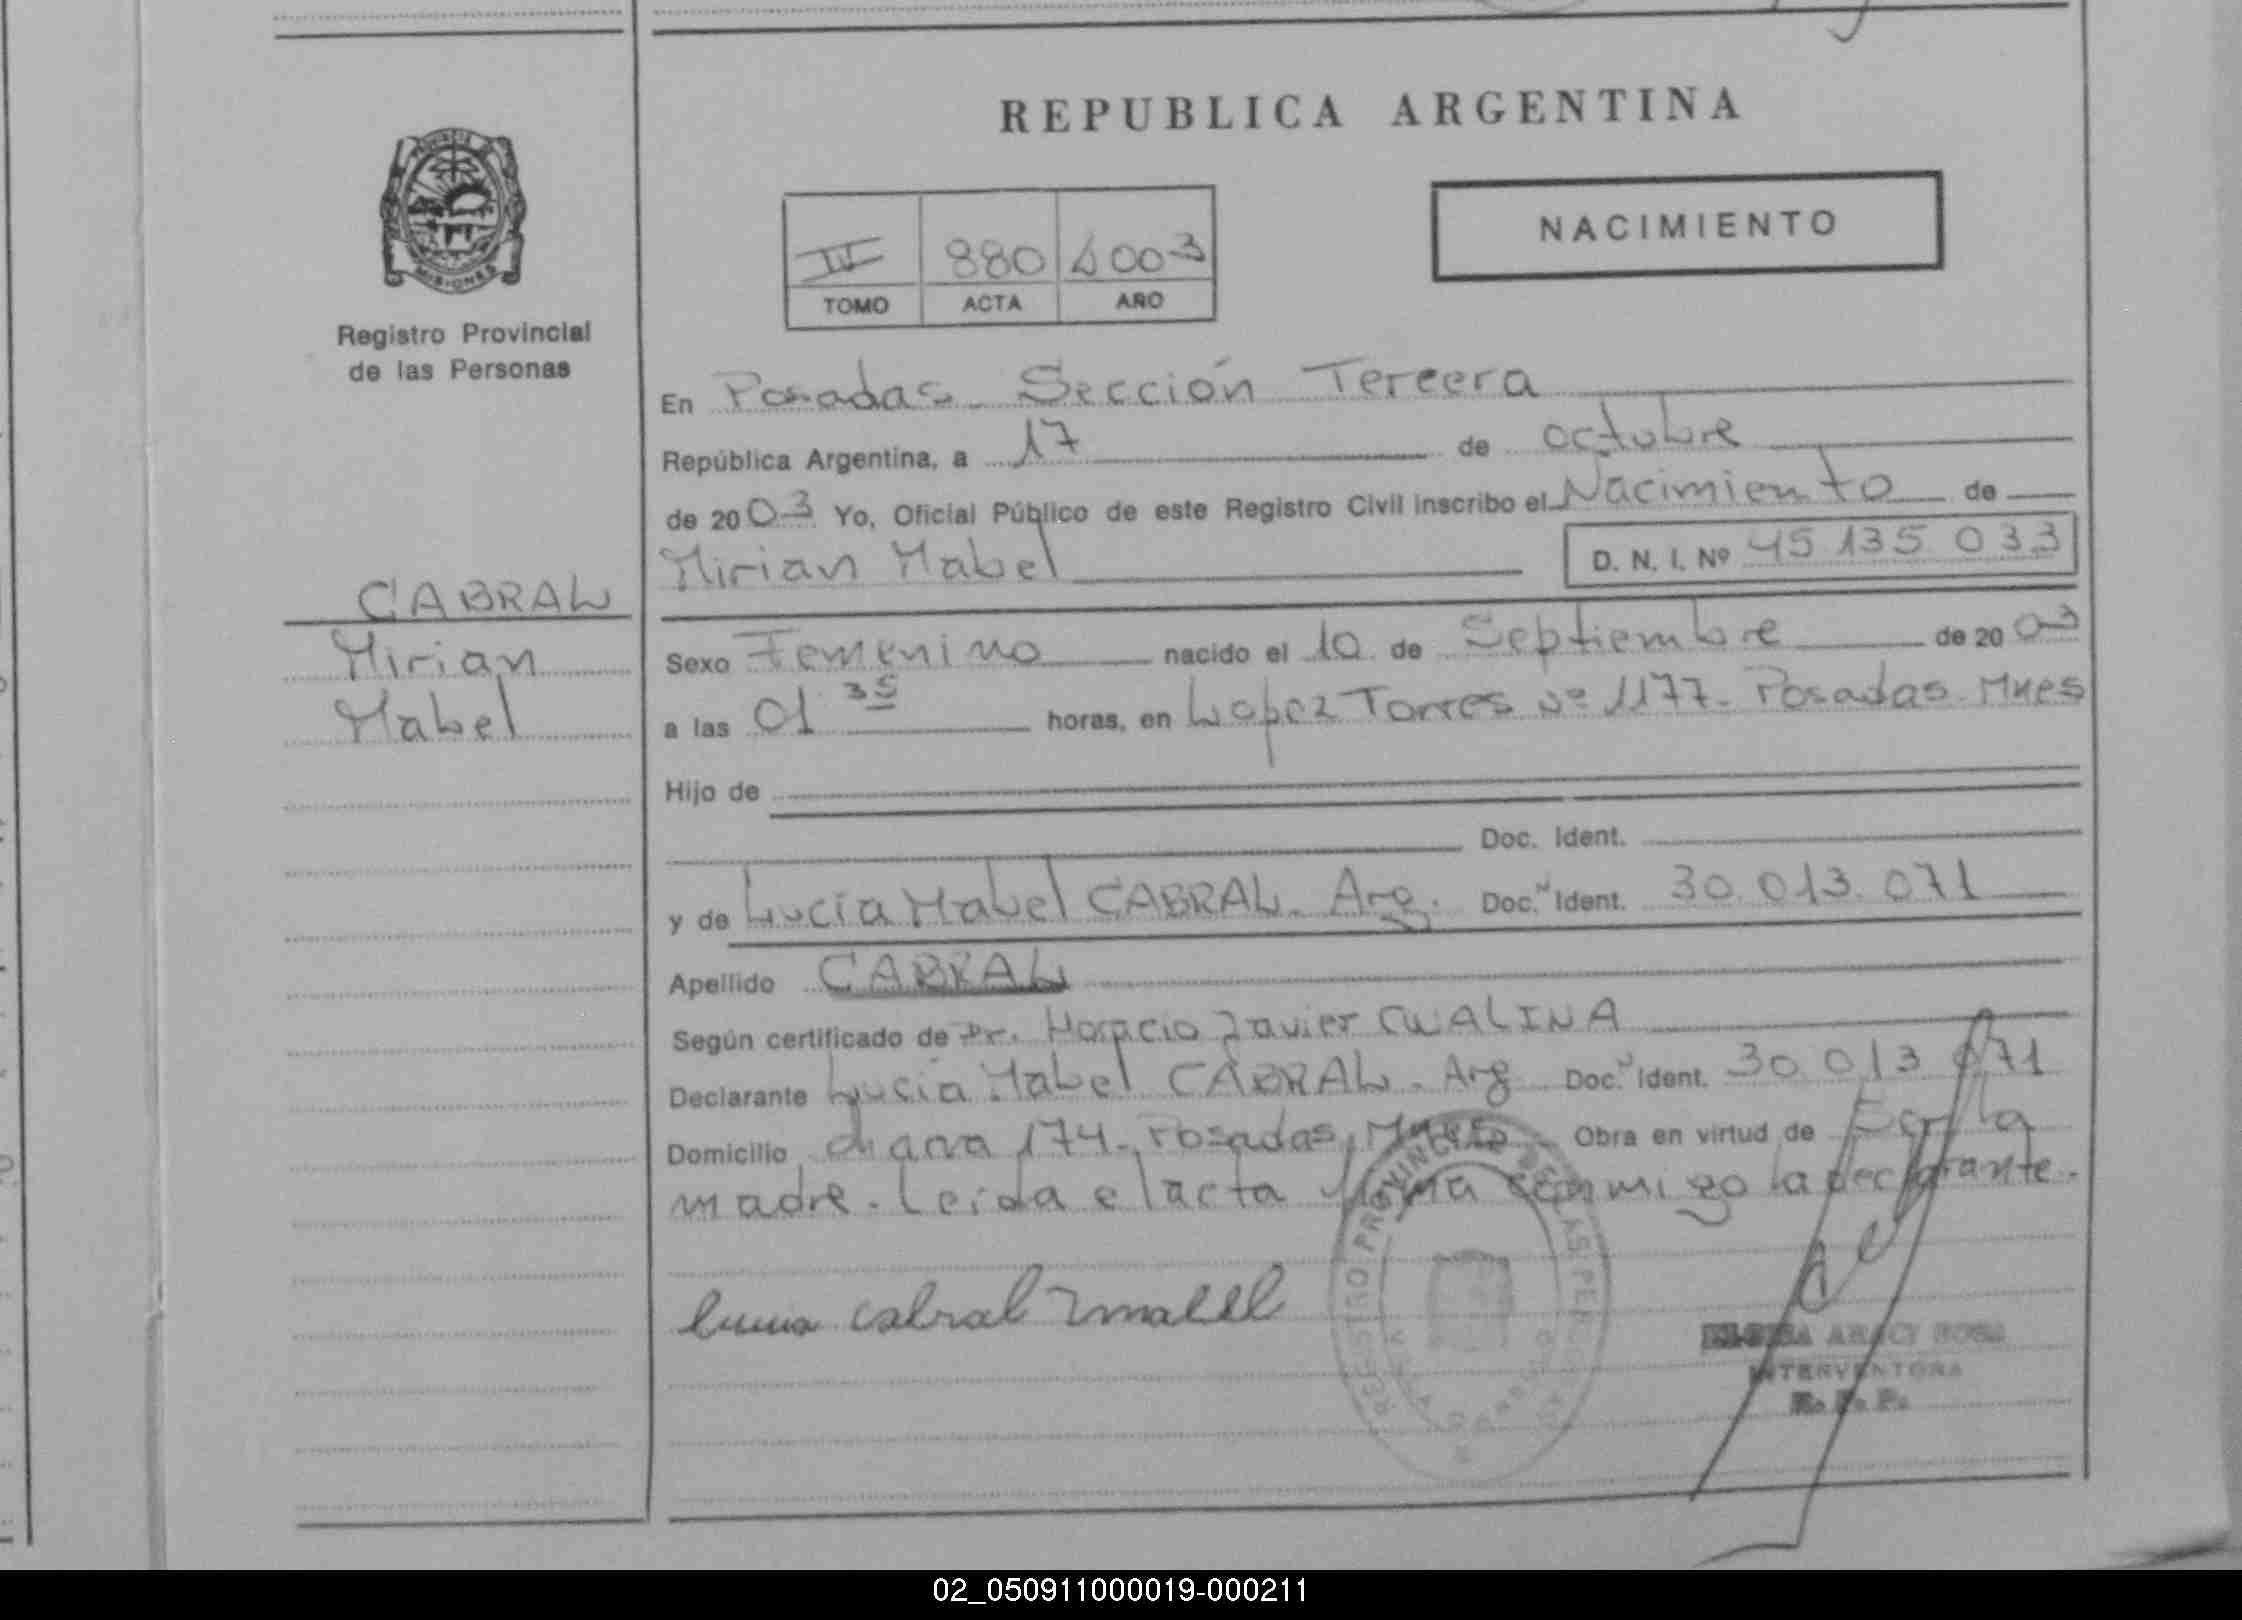 REPUBLICA ARGENTINA
NACIMIENTO
IV 880 2003
TOMO ACTA AÑO
PROVINCIA DE
MISIONES
Registro Provincial
de las Personas
En Posadas - Sección Tercera
República Argentina, a 17 de octubre
de 2003 Yo, Oficial Público de este Registro Civil inscribo el Nacimiento de
Mirian Mabel D. N. I. Nº 45 135 033
CABRAL
Mirian
Mabel
Sexo Femenino nacido el 10 de Septiembre de 2003
a las 01 35 horas, en Lopez Torres Nº 1177 - Posadas - Mnes
Hijo de
Doc. Ident.
y de Lucia Mabel CABRAL - Arg. Doc. Ident. 30.013.071
Apellido CABRAL
Según certificado de Dr. Horacio Javier CWALINA
Declarante Lucia Mabel CABRAL - Arg Doc. Ident. 30 013 071
Domicilio 174 - Posadas, Mnes Obra en virtud de Ser la
madre. Leida el acta firma conmigo la declarante.
Lucia Cabral Mabel
REGISTRO PROVINCIAL DE LAS PERSONAS
ARACY ROSA
INTERVENTORA
R. P. P.
02_050911000019-000211